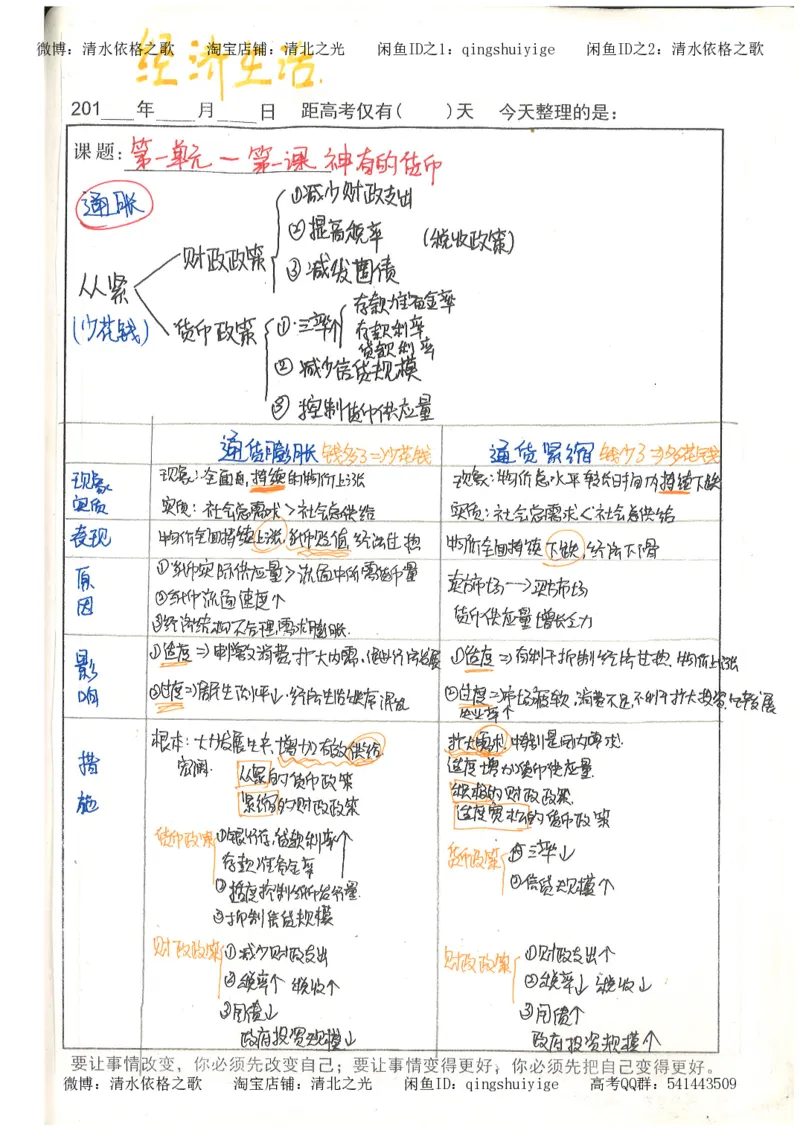 微博：清水依格之歌 淘宝店铺：清北之光 闲鱼ID之1：qingshuiyige 闲鱼ID之2：清水依格之歌
经济生活.
201___年____月____日 距高考仅有( )天 今天整理的是：
课题：第一单元一第一课 神奇的货币
通胀
①减少财政支出
财政政策 ②提高税率 (税收政策)
③减发国债
从紧
(少花钱)
存款准备金率
货币政策 ①.三率个 存款利率
贷款利率
②减少信贷规模
③控制货币供应量
通货膨胀 钱多了⇒少花钱 通货紧缩 钱少了⇒多花钱
现象 现象：全面且持续的物价上涨 现象：物价总水平较长时间内持续下跌
实质 实质：社会总需求>社会总供给 实质：社会总需求<社会总供给
表现 物价全面持续上涨,纸币贬值,经济过热 物价全面持续下跌,经济下滑
原因 ①纸币实际供应量>流通中所需货币量 卖方市场-->买方市场
②纸币流通速度个 货币供应量增长乏力
③经济结构不合理,需求膨胀.
影响 ①适度⇒刺激消费,扩大内需,促进经济发展 ①适度⇒有利于抑制经济过热 物价上涨
②过度⇒居民生活水平↓,经济生活秩序混乱 ②过度⇒市场疲软,消费不足,不利于扩大投资,
失业率个
措施 根本：大力发展生产,增加有效供给 扩大需求,特别是国内需求.
宏调： 从紧的货币政策 适度增加货币供应量.
紧缩的财政政策 积极的财政政策.
适度宽松的货币政策
货币政策 ①银行存,贷款利率↑ 货币政策 ①三率↓
存款准备金率 ②信贷规模个
②适度控制纸币发行量.
③抑制信贷规模
财政政策 ①减少财政支出 财政政策 ①财政支出个
②税率个 税收个 ②税率↓ 税收↓
③国债↓ ③国债个
政府投资规模↓ 政府投资规模个
要让事情改变，你必须先改变自己；要让事情变得更好，你必须先把自己变得更好。
微博：清水依格之歌 淘宝店铺：清北之光 闲鱼ID：qingshuiyige 高考QQ群：541443509